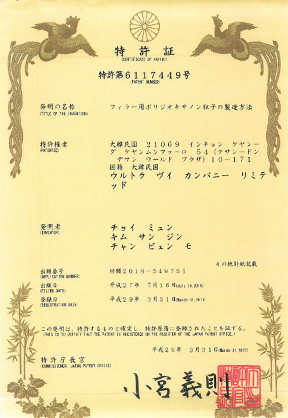 特許証
(CERTIFICATE OF PATENT)
特許第6117449号
(PATENT NUMBER)
発明の名称
(TITLE OF THE INVENTION)
フィラー用ポリジオキサノン粒子の製造方法
特許権者
(PATENTEE)
大韓民国 21069 インチョン ゲヤン-
グ ゲヤンムンファ-ロ 54 (ゲサン-ドン
デサン ワールド プラザ) 10-171
国籍 大韓民国
ウルトゥ ヴィ カンパニー リミテ
ッド
発明者
(INVENTOR)
チョイ ミュン
キム サン ジン
チャン ビュン モ
その他別紙記載
出願番号
(APPLICATION NUMBER)
特願2016-549751
出願日
(FILING DATE)
平成27年 7月16日(July 16,2015)
登録日
(REGISTRATION DATE)
平成29年 3月31日(March 31,2017)
この発明は、特許するものと確定し、特許原簿に登録されたことを証する。
(THIS IS TO CERTIFY THAT THE PATENT IS REGISTERED ON THE REGISTER OF THE JAPAN PATENT OFFICE.)
平成29年 3月31日(March 31,2017)
特許庁長官
(COMMISSIONER, JAPAN PATENT OFFICE)
小宮義則